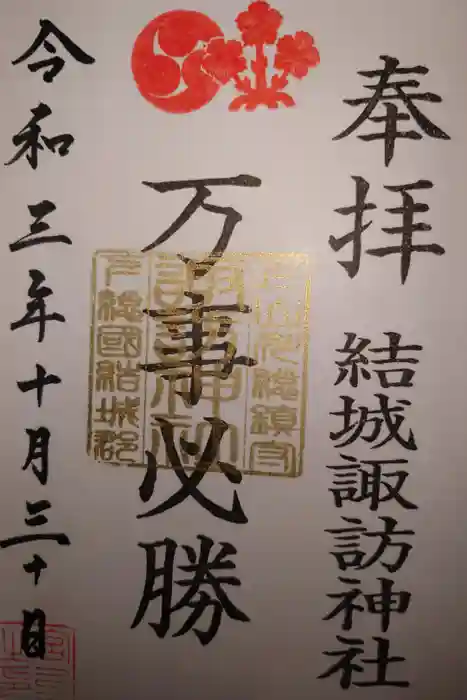 奉拝 結城諏訪神社
万事必勝
令和三年十月三十日
諏訪神社
下総國結城郡